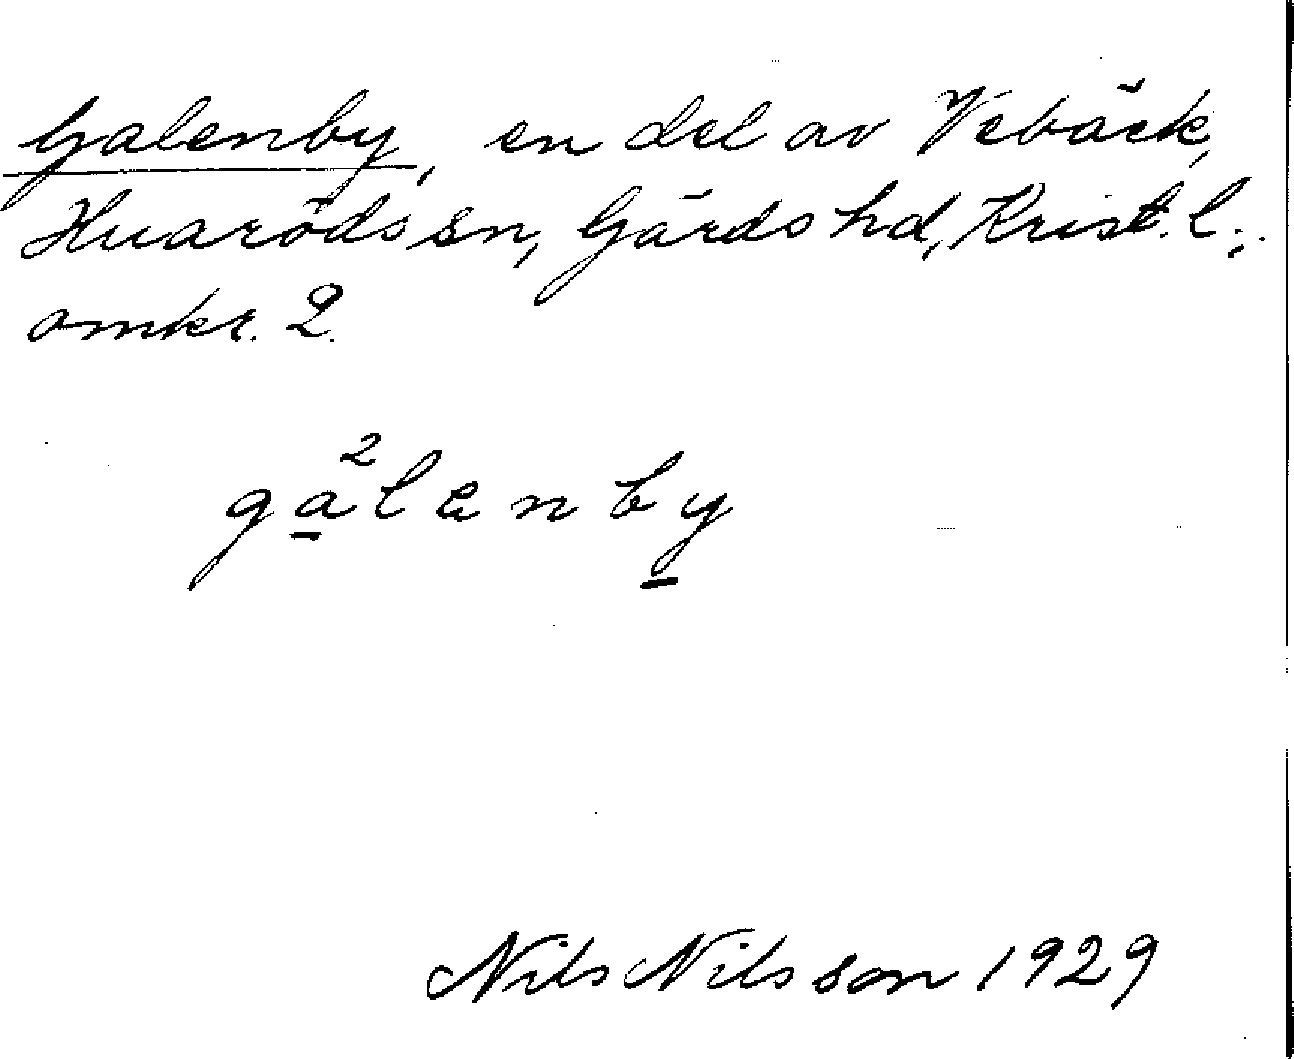 Galenby, en del av Vebäck,
Huaröds sn, Gärds hd, Krist. l.;
omkr. 2.
2
galenby
Nils Nilsson 1929